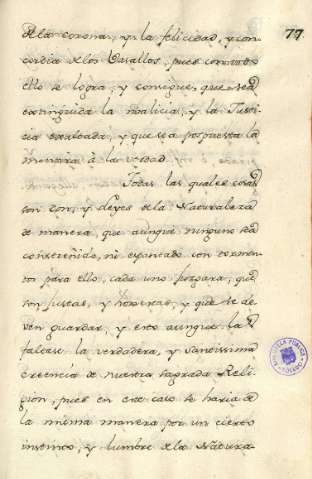 77
de las coronas, y la felicidad, y con-
cordia de los Vasallos, pues con
ello se logra, y consigue, que sea
extinguida la malicia, y la Justi-
cia exaltada, y que sea pospuesta la
mentira à la verdad.
Todas las quales cosas
son con, y Leyes de la Naturaleza
de manera, que aunque ninguno sea
constreñido, ni espantado con tormen-
tos para ello, cada uno que
son justas, y honestas, y que se de-
ven guardar, y esto aunque la
faltase la verdadera, y santissima
creencia de nuestra sagrada Reli-
gion, pues en este caso se haria de
la misma manera por un cierto
instinto, y lumbre de la Natura-
BIBLIOTECA PUBLICA
TOLEDO